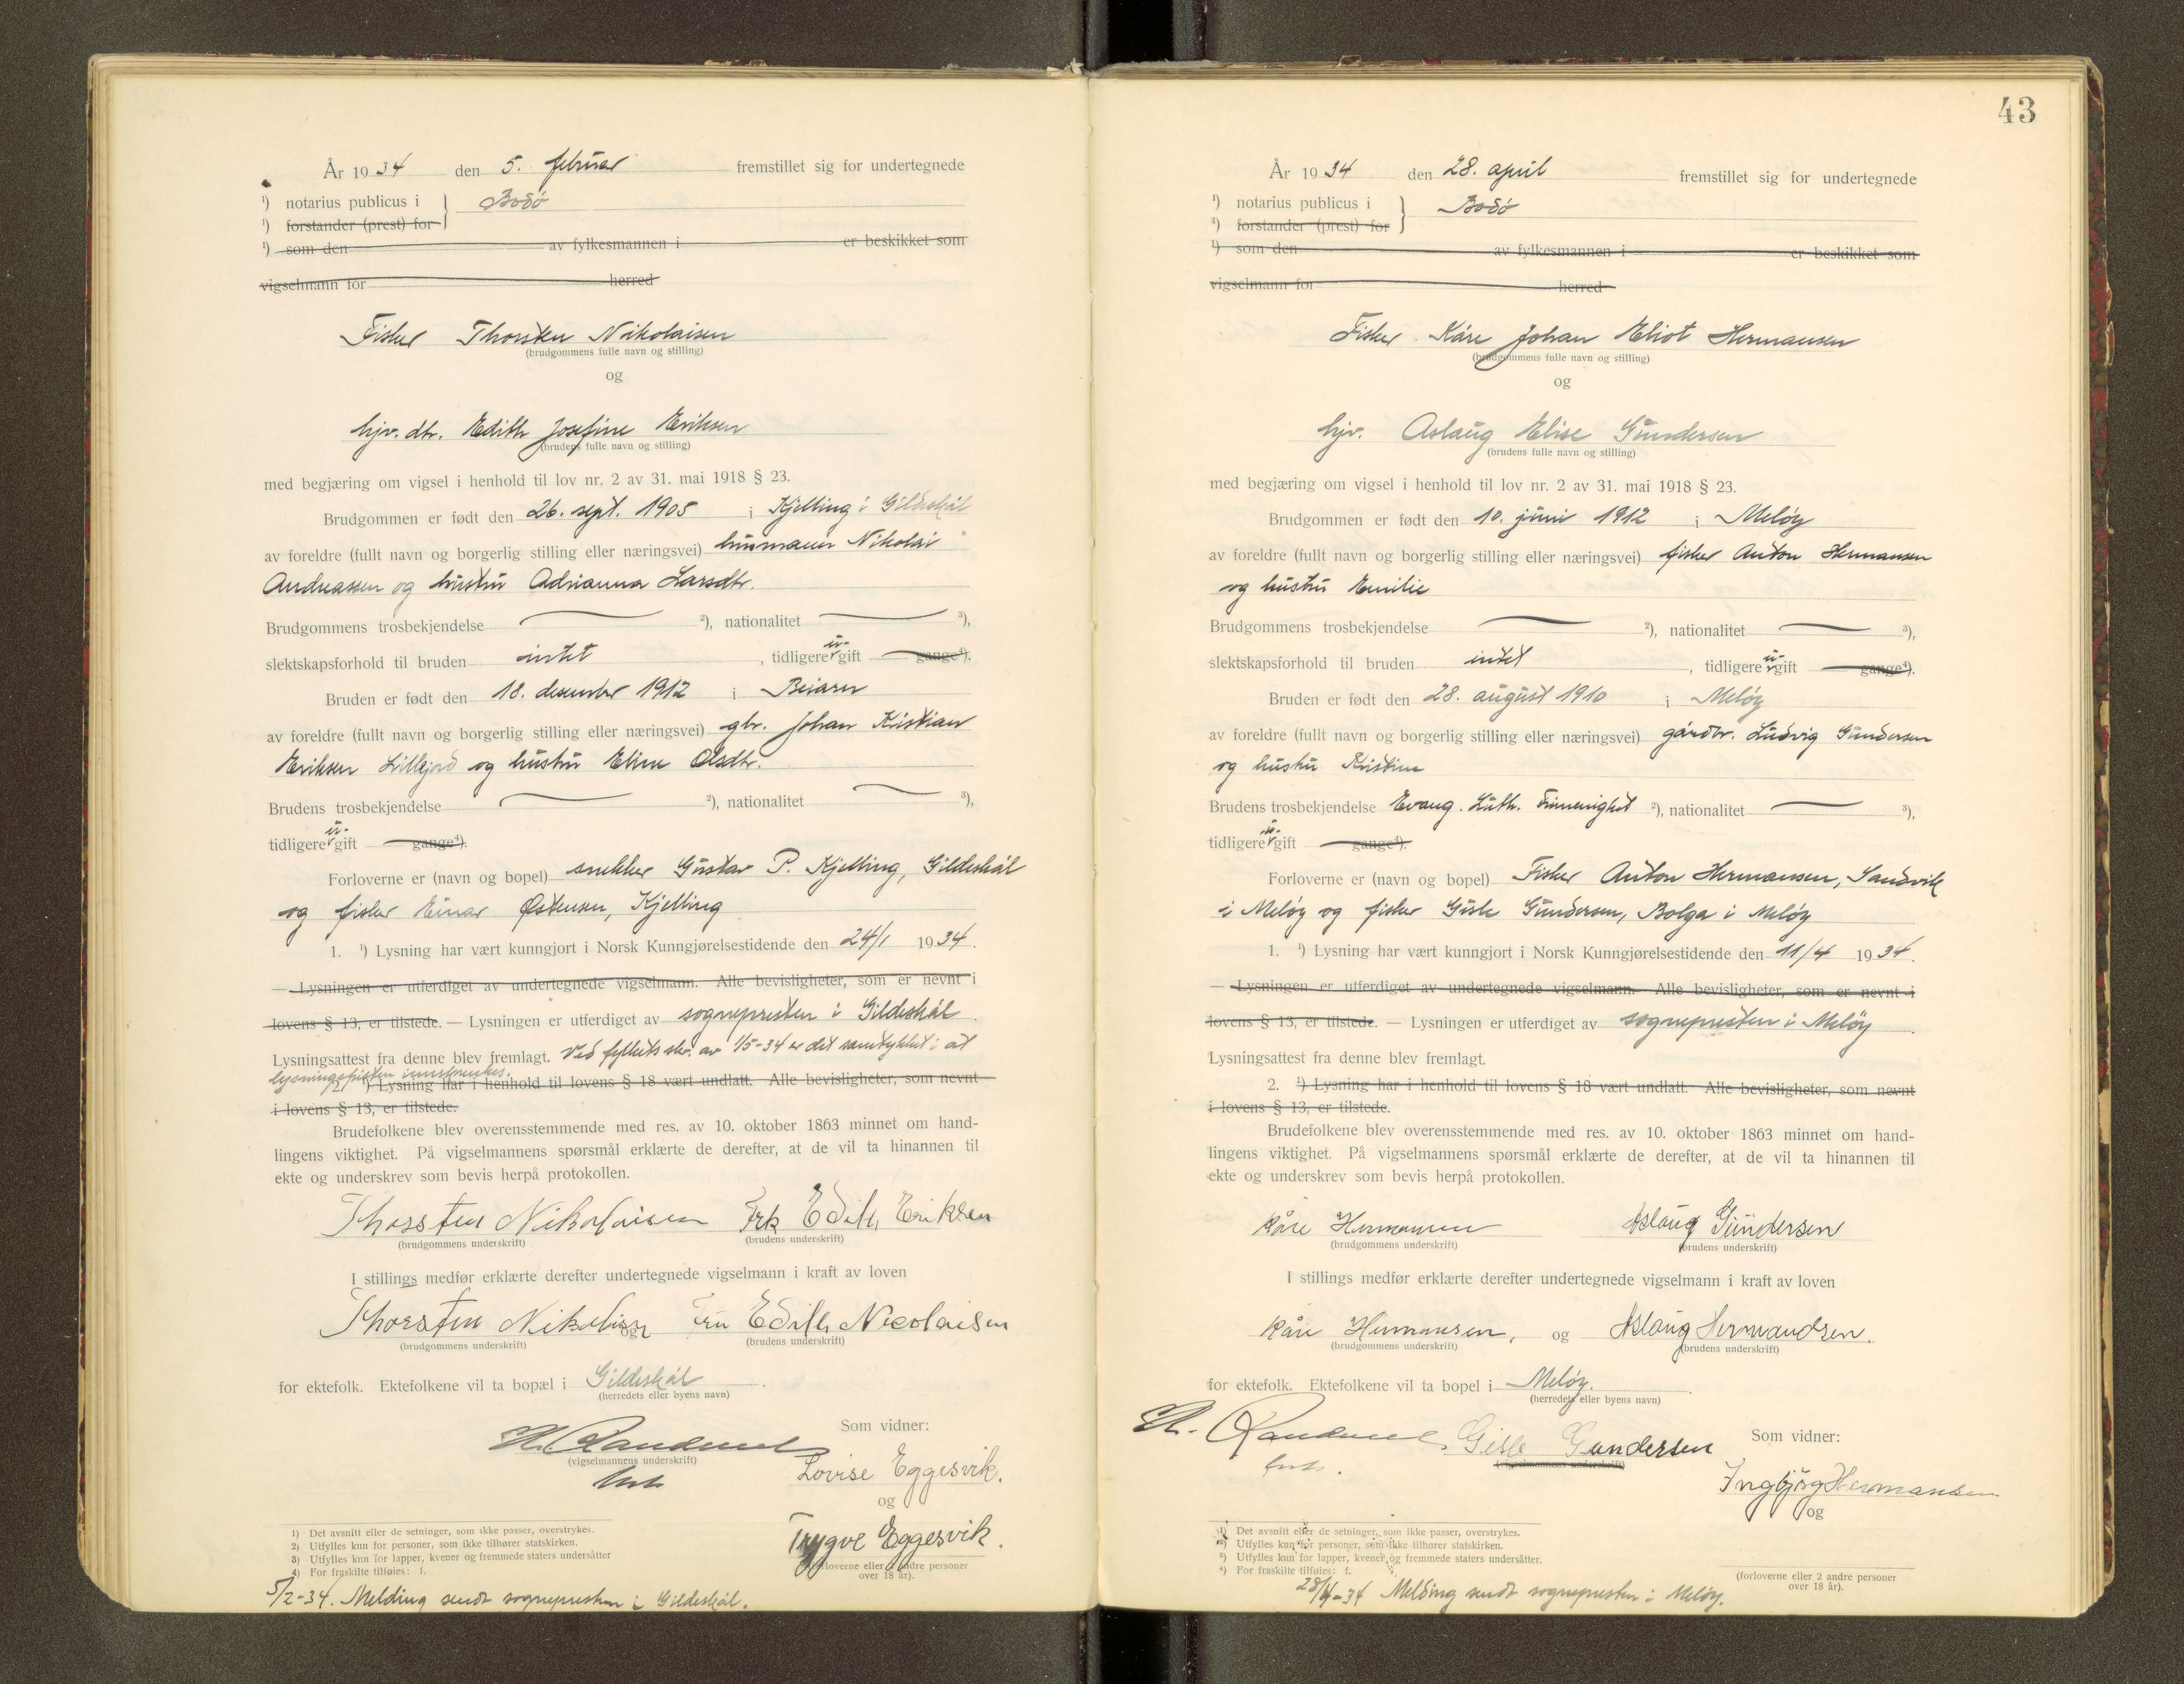 År 1934 den 5. februar fremstillet sig for undertegnede
¹) notarius publicus i } Bodö
¹) forstander (prest) for
¹) som den av fylkesmannen i er beskikket som
vigselmann for herred
Fisker Thorsten Nikolaisen
(brudgommens fulle navn og stilling)
og
hjv. dtr. Edith Josefine Eriksen
(brudens fulle navn og stilling)
med begjæring om vigsel i henhold til lov nr. 2 av 31. mai 1918 § 23.
Brudgommen er født den 26. sept. 1905 i Kjelling i Gildeskål
av foreldre (fullt navn og borgerlig stilling eller næringsvei) husmann Nikolai
Andreassen og hustru Adrianna Larsdtr.
Brudgommens trosbekjendelse — ²), nationalitet — ³),
slektskapsforhold til bruden intet, tidligere u-gift — gange⁴).
Bruden er født den 18. desember 1912 i Beiarn
av foreldre (fullt navn og borgerlig stilling eller næringsvei) gbr. Johan Kristian
Eriksen Lillejord og hustru Eline Olsdtr.
Brudens trosbekjendelse — ²), nationalitet — ³),
tidligere u-gift — gange⁴).
Forloverne er (navn og bopel) snekker Gustav P. Kjelling, Gildeskål
og fisker Einar Østensen, Kjelling
1. ¹) Lysning har vært kunngjort i Norsk Kunngjørelsestidende den 24/1 1934.
— Lysningen er utferdiget av undertegnede vigselmann. Alle bevisligheter, som er nevnt i
lovens § 13, er tilstede. — Lysningen er utferdiget av sognepresten i Gildeskål.
Lysningsattest fra denne blev fremlagt. Ved fylkets skr. av 1/5-34 er det samtykket i at
lysningsfristen innskrenkes.
2. ¹) Lysning har i henhold til lovens § 18 vært undlatt. Alle bevisligheter, som nevnt
i lovens § 13, er tilstede.
Brudefolkene blev overensstemmende med res. av 10. oktober 1863 minnet om hand-
lingens viktighet. På vigselmannens spørsmål erklærte de derefter, at de vil ta hinannen til
ekte og underskrev som bevis herpå protokollen.
Thorsten Nikolaisen Frk Edith Eriksen
(brudgommens underskrift) (brudens underskrift)
I stillings medfør erklærte derefter undertegnede vigselmann i kraft av loven
Thorsten Nikolaisen og Fru Edith Nicolaisen
(brudgommens underskrift) (brudens underskrift)
for ektefolk. Ektefolkene vil ta bopæl i Gildeskål.
(herredets eller byens navn)
Som vidner:
(vigselmannens underskrift)
Lovise Eggesvik.
og
Trygve Eggesvik.
(forloverne eller 2 andre personer
over 18 år).
1) Det avsnitt eller de setninger, som ikke passer, overstrykes.
2) Utfylles kun for personer, som ikke tilhører statskirken.
3) Utfylles kun for lapper, kvener og fremmede staters undersåtter
4) For fraskilte tilføies: f.
5/2-34. Melding sendt sognepresten i Gildeskål.
43
År 1934 den 28. april fremstillet sig for undertegnede
¹) notarius publicus i } Bodö
¹) forstander (prest) for
¹) som den av fylkesmannen i er beskikket som
vigselmann for herred
Fisker Kåre Johan Eliot Hermansen
(brudgommens fulle navn og stilling)
og
hjv. Aslaug Elise Gundersen
(brudens fulle navn og stilling)
med begjæring om vigsel i henhold til lov nr. 2 av 31. mai 1918 § 23.
Brudgommen er født den 10. juni 1912 i Melöy
av foreldre (fullt navn og borgerlig stilling eller næringsvei) fisker Anton Hermansen
og hustru Emilie
Brudgommens trosbekjendelse — ²), nationalitet — ³),
slektskapsforhold til bruden intet, tidligere u-gift — gange⁴).
Bruden er født den 28. august 1910 i Melöy
av foreldre (fullt navn og borgerlig stilling eller næringsvei) gårdbr. Ludvig Gundersen
og hustru Kristine
Brudens trosbekjendelse Evang. Luth. Frimenighet ²), nationalitet — ³),
tidligere u-gift — gange⁴).
Forloverne er (navn og bopel) Fisker Anton Hermansen, Sandvik
i Melöy og fisker Gisle Gundersen, Bolga i Melöy
1. ¹) Lysning har vært kunngjort i Norsk Kunngjørelsestidende den 11/4 1934.
— Lysningen er utferdiget av undertegnede vigselmann. Alle bevisligheter, som er nevnt i
lovens § 13, er tilstede. — Lysningen er utferdiget av sognepresten i Melöy.
Lysningsattest fra denne blev fremlagt.
2. ¹) Lysning har i henhold til lovens § 18 vært undlatt. Alle bevisligheter, som nevnt
i lovens § 13, er tilstede.
Brudefolkene blev overensstemmende med res. av 10. oktober 1863 minnet om hand-
lingens viktighet. På vigselmannens spørsmål erklærte de derefter, at de vil ta hinannen til
ekte og underskrev som bevis herpå protokollen.
Kåre Hermansen Aslaug Gundersen
(brudgommens underskrift) (brudens underskrift)
I stillings medfør erklærte derefter undertegnede vigselmann i kraft av loven
Kåre Hermansen, og Aslaug Hermandsen.
(brudgommens underskrift) (brudens underskrift)
for ektefolk. Ektefolkene vil ta bopel i Melöy.
(herredets eller byens navn)
Gisle Gundersen Som vidner:
(vigselmannens underskrift)
Ingbjörg Hermansen
og
(forloverne eller 2 andre personer
over 18 år).
1) Det avsnitt eller de setninger, som ikke passer, overstrykes.
2) Utfylles kun for personer, som ikke tilhører statskirken.
3) Utfylles kun for lapper, kvener og fremmede staters undersåtter.
4) For fraskilte tilføies: f.
28/4-34 Melding sendt sognepresten i Melöy.